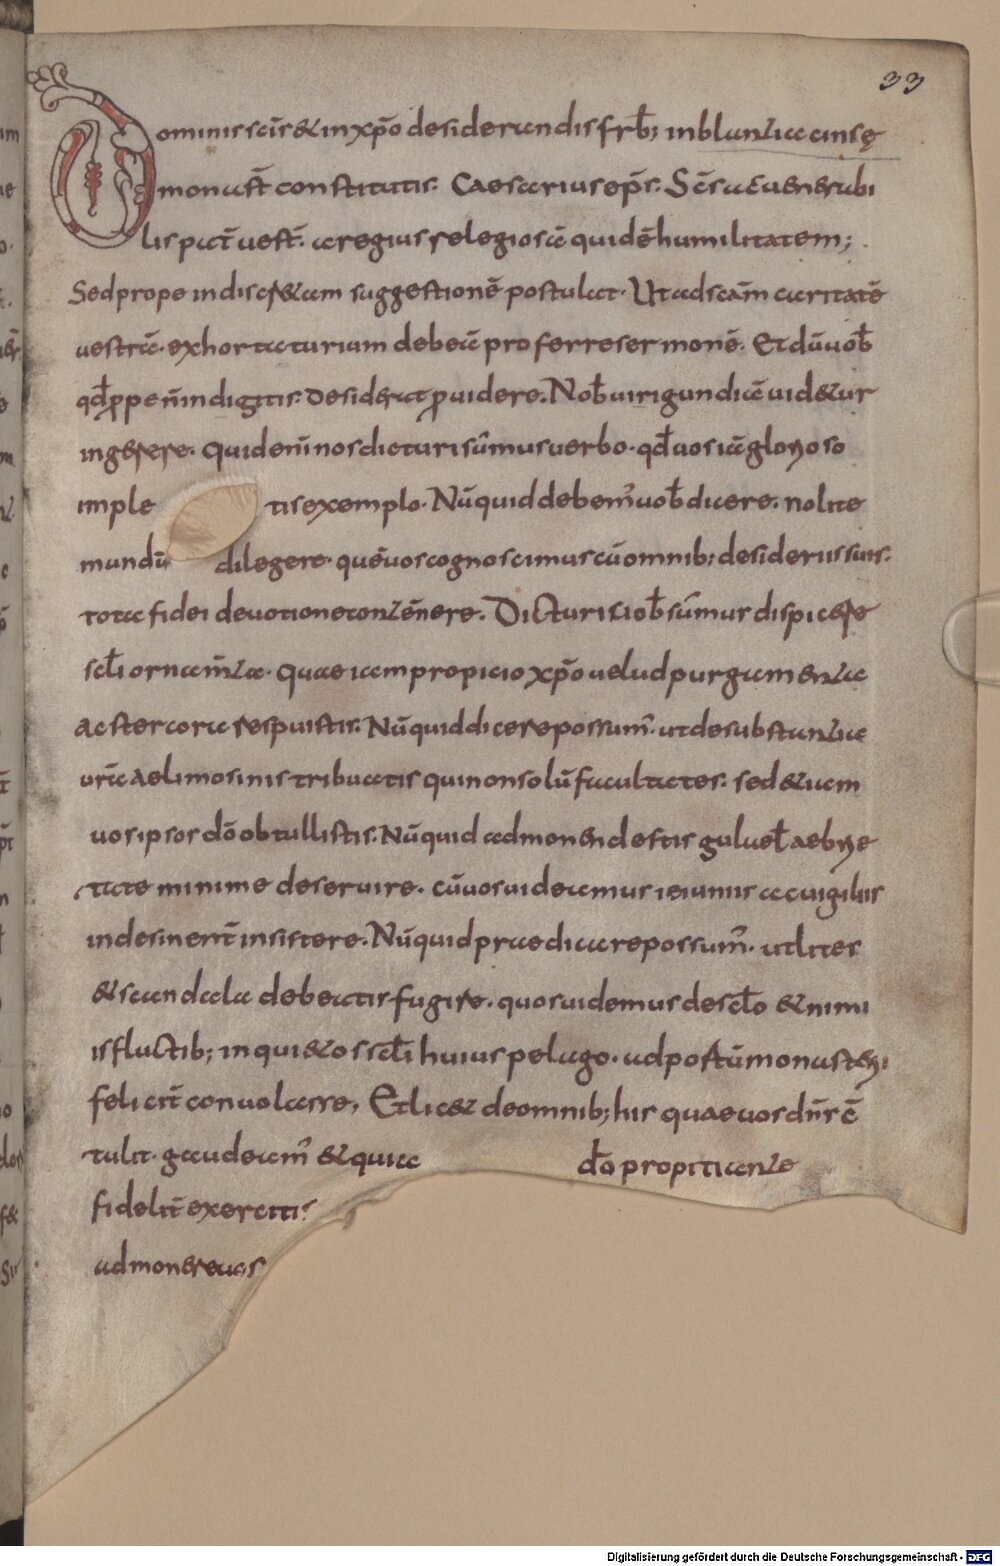 33
Dominis sc̄is & in xp̄o desiderandis frb̄; inblanziacinsę
monast̄ constitutis. Caesarius ep̄s. Sc̄s ac uenerabi
lis pat̄ uest̄. aregius relegiosā quidē humilitatem;
Sed prope indiscr&am suggestionē postulat. Ut ad sc̄am caritatē
uestrā. exhortaturium debeā proferre sermonē. Et dū uob̄
qd̄ p̱pen̄ indigitis desiderat p̱uidere. Nob̄ uirigundiā uid&ur
ingerere. Quid eni᷎ nos dicturi sūmus uerbo. qd̄ uos iā glorioso
imple tis exemplo. Nūquid debem᷎ uob̄ dicere. nolite
mundū dilegere. quē uos cognoscimus cū omnib; desideriis suis.
tota fidei deuotione contēnere. Dicturi uob̄ sūmus dispicere
scl̄i ornam̄ta. Quae iam propicio xp̄o uelud purgamenta
ac stercora respuistis. Nūquid dicere possum᷎. ut de substantia
ur̄a aelimosinis tribuatis qui non solū facultates. sed & iam
uos ipsos dō obtullistis. Nūquid admonendi estis gulae l̄ aebrie
tate minime deseruire. cū uos uideamus ieiuniis ac uigiliis
indesinent̄ insistere. Nūquid praedicare possum᷎. ut lites
& scandala debeatis fugire. quos uidemus de scl̄o & nimi
is fluctib; inqui&os scl̄i huius pelago. ad portū monasterii
felicit̄ conuolasse, Et lic& de omnib; his quae uos dn̄s c̄
tulit. gaudeam᷎ & quia dō propitiante
fidelit̄ exercitis
admonere uos
Digitalisierung gefördert durch die Deutsche Forschungsgemeinschaft - DFG